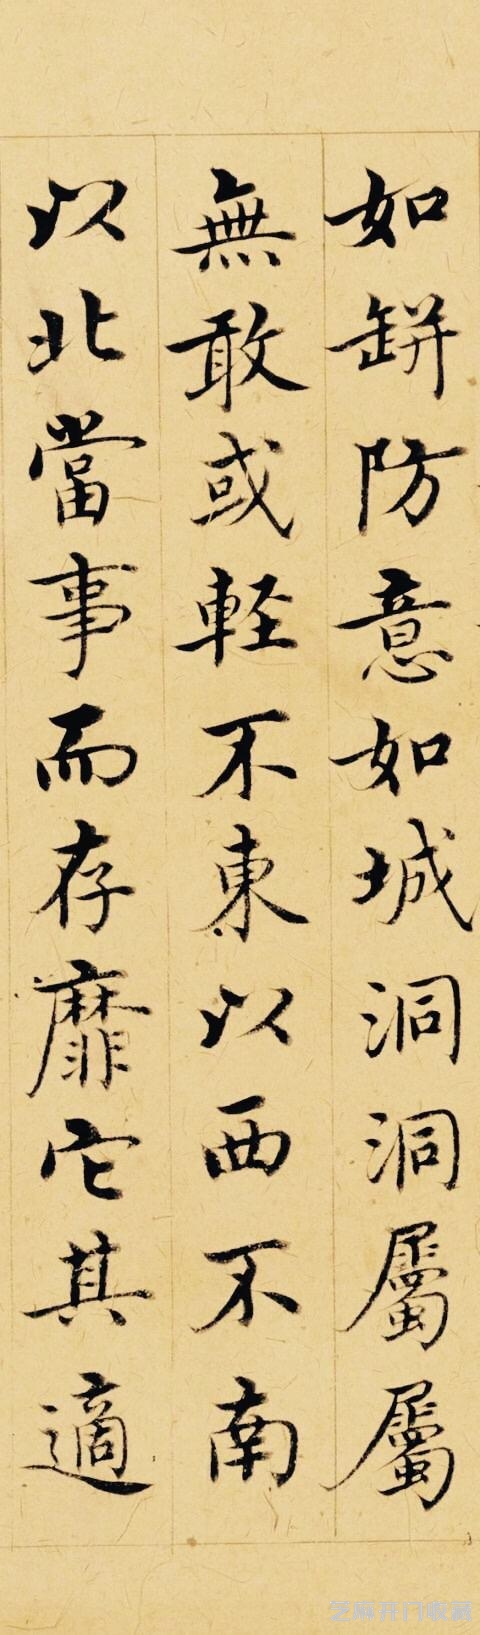 如缾防意如城洞洞屬屬
無敢或軽不東以西不南
以北當事而存靡它其適
芝麻开门收藏